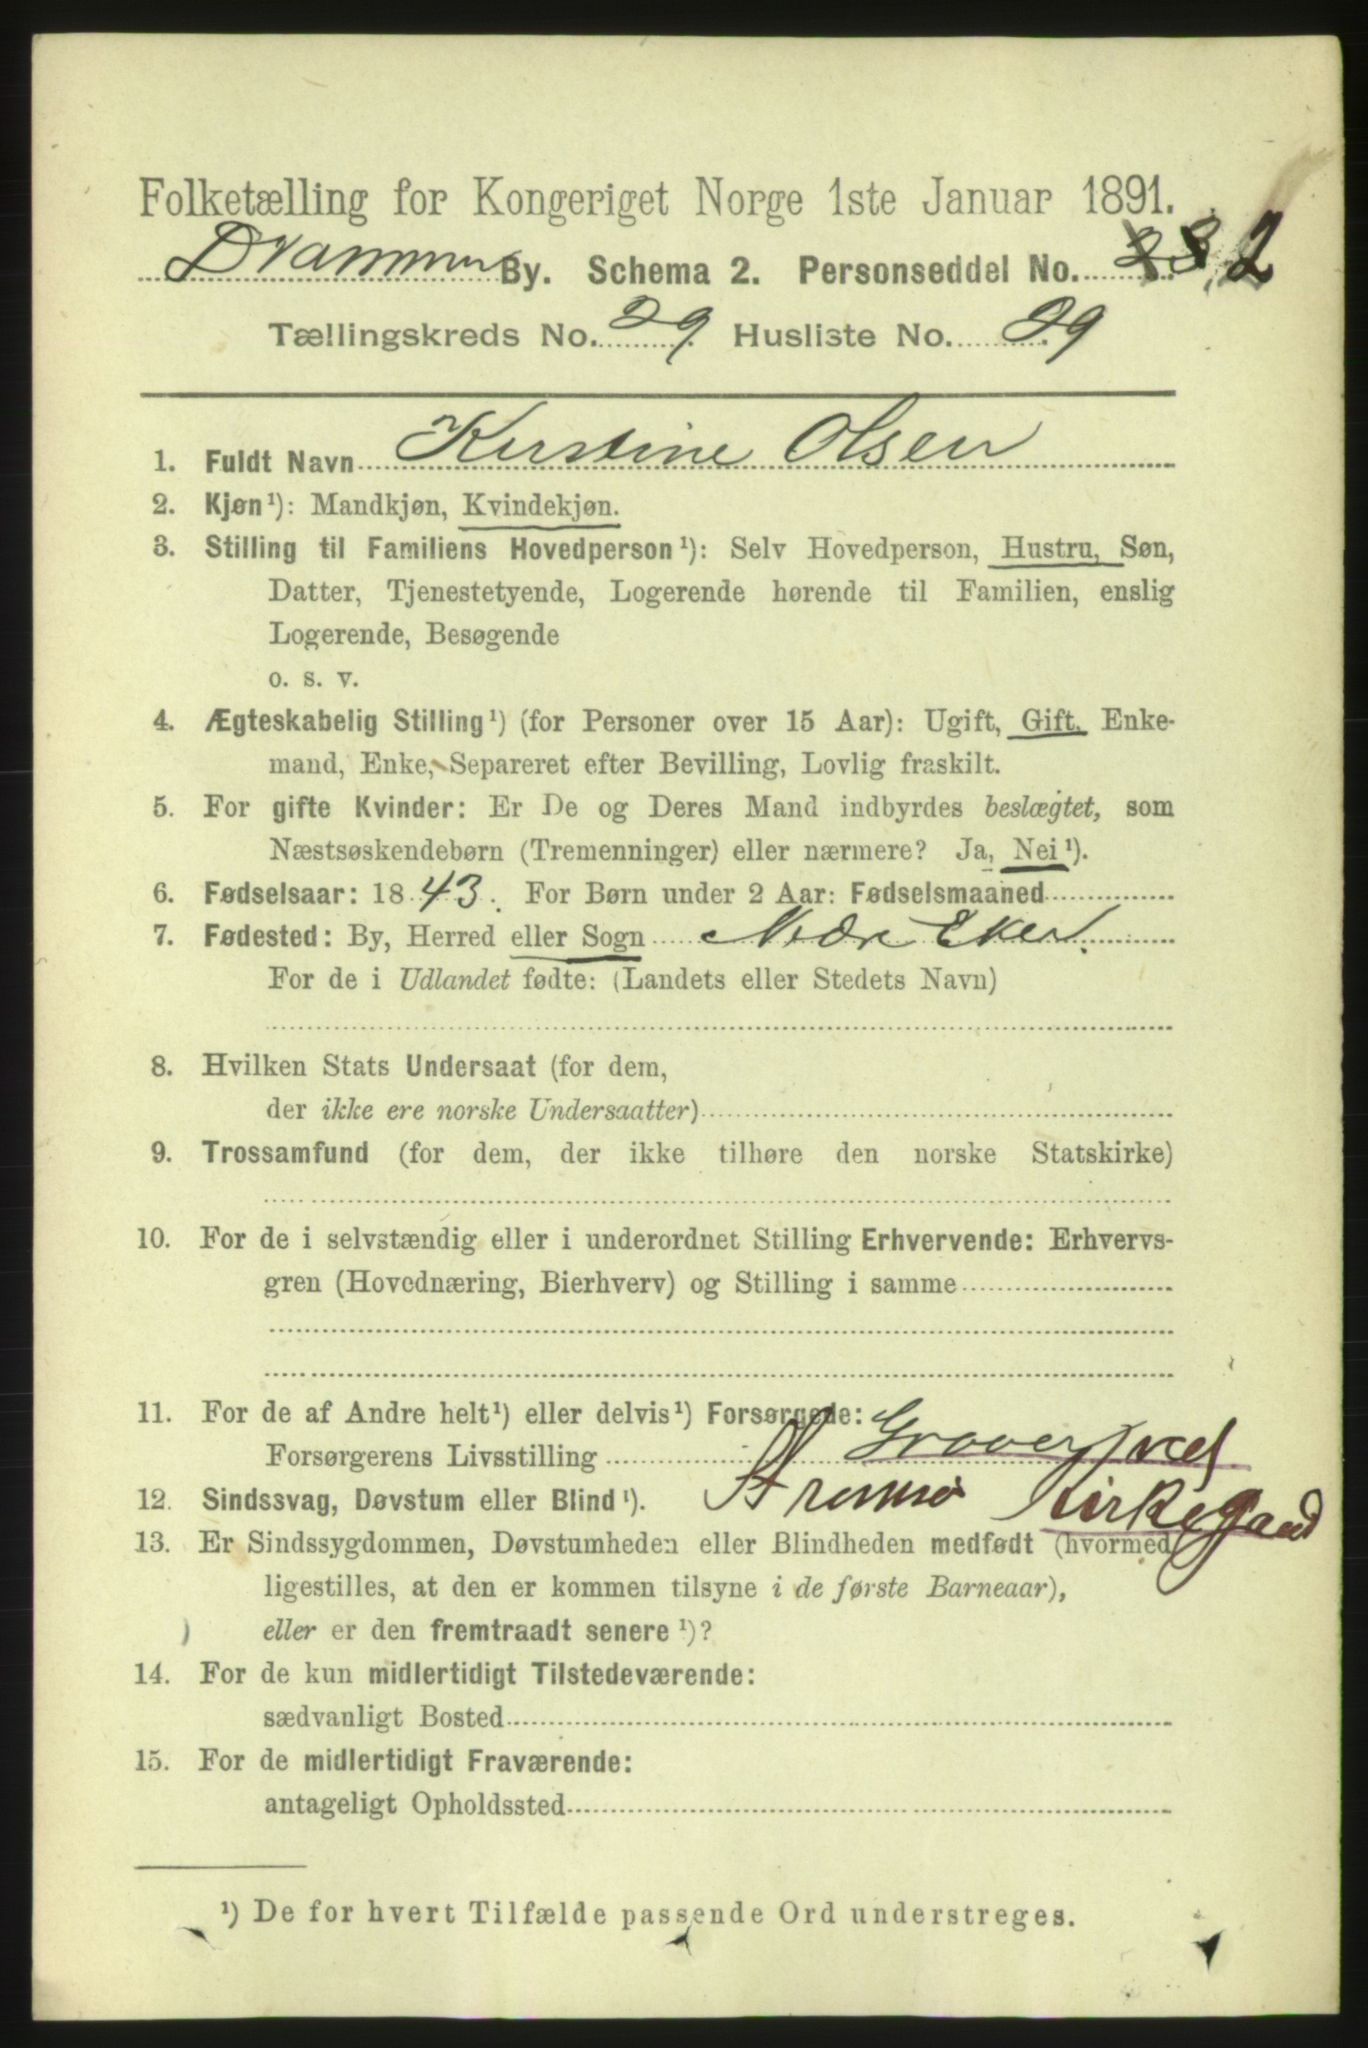 Folketælling for Kongeriget Norge 1ste Januar 1891.
Drammen By. Schema 2. Personseddel No. 2
Tællingskreds No. 29 Husliste No. 29
1. Fuldt Navn Kirstine Olsen
2. Kjøn¹): Mandkjøn, Kvindekjøn.
3. Stilling til Familiens Hovedperson¹): Selv Hovedperson, Hustru, Søn,
Datter, Tjenestetyende, Logerende hørende til Familien, enslig
Logerende, Besøgende
o. s. v.
4. Ægteskabelig Stilling¹) (for Personer over 15 Aar): Ugift, Gift. Enke-
mand, Enke, Separeret efter Bevilling, Lovlig fraskilt.
5. For gifte Kvinder: Er De og Deres Mand indbyrdes beslægtet, som
Næstsøskendebørn (Tremenninger) eller nærmere? Ja, Nei¹).
6. Fødselsaar: 1843. For Børn under 2 Aar: Fødselsmaaned
7. Fødested: By, Herred eller Sogn Nedre Eker.
For de i Udlandet fødte: (Landets eller Stedets Navn)
8. Hvilken Stats Undersaat (for dem,
der ikke ere norske Undersaatter)
9. Trossamfund (for dem, der ikke tilhøre den norske Statskirke)
10. For de i selvstændig eller i underordnet Stilling Erhvervende: Erhvervs-
gren (Hovednæring, Bierhverv) og Stilling i samme
11. For de af Andre helt¹) eller delvis¹) Forsørgede:
Forsørgerens Livsstilling Graver ved
12. Sindssvag, Døvstum eller Blind¹). Strømsø Kirkegaard
13. Er Sindssygdommen, Døvstumheden eller Blindheden medfødt (hvormed
ligestilles, at den er kommen tilsyne i de første Barneaar),
eller er den fremtraadt senere¹)?
14. For de kun midlertidigt Tilstedeværende:
sædvanligt Bosted
15. For de midlertidigt Fraværende:
antageligt Opholdssted
¹) De for hvert Tilfælde passende Ord understreges.